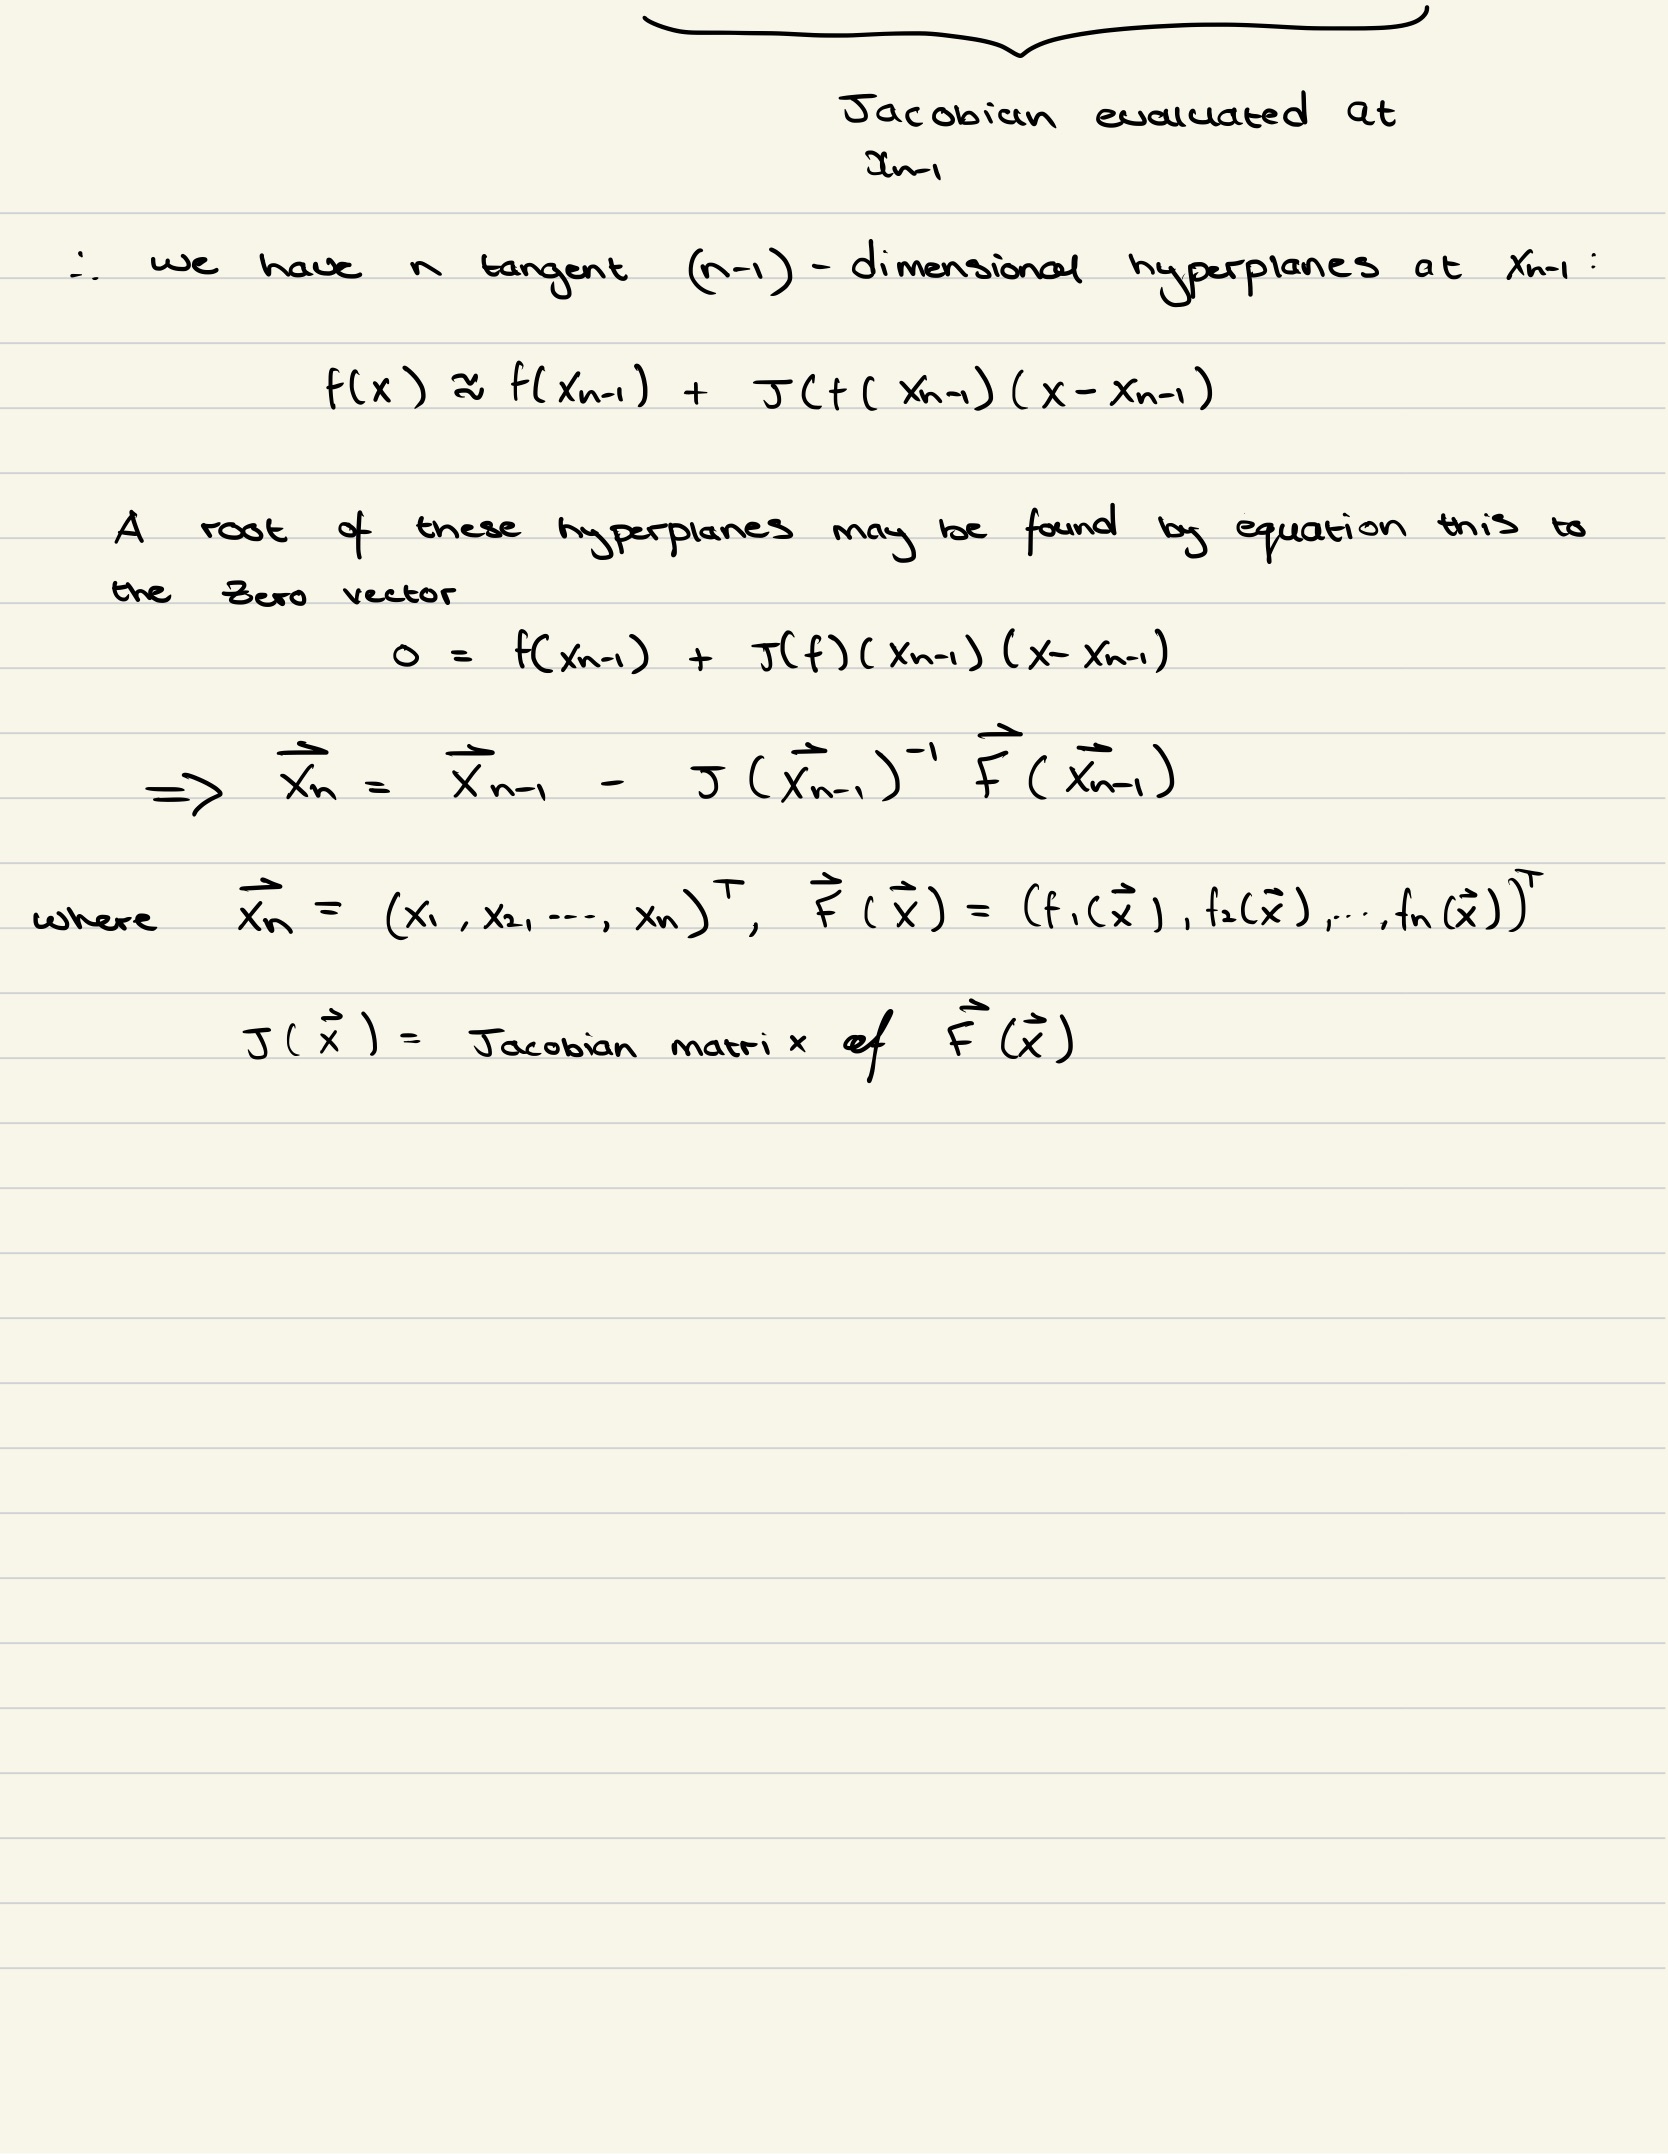 Jacobian evaluated at
xn-1
∴ we have n tangent (n-1) - dimensional hyperplanes at xn-1 :
f(x) ≈ f(xn-1) + J(f(xn-1)(x - xn-1)
A root of these hyperplanes may be found by equation this to
the zero vector
0 = f(xn-1) + J(f)(xn-1)(x - xn-1)
=> x⃗n = x⃗n-1 - J(x⃗n-1)⁻¹ F⃗(x⃗n-1)
where x⃗n = (x1, x2, ..., xn)ᵀ, F⃗(x⃗) = (f1(x⃗), f2(x⃗), ..., fn(x⃗))ᵀ
J(x⃗) = Jacobian matrix of F⃗(x⃗)